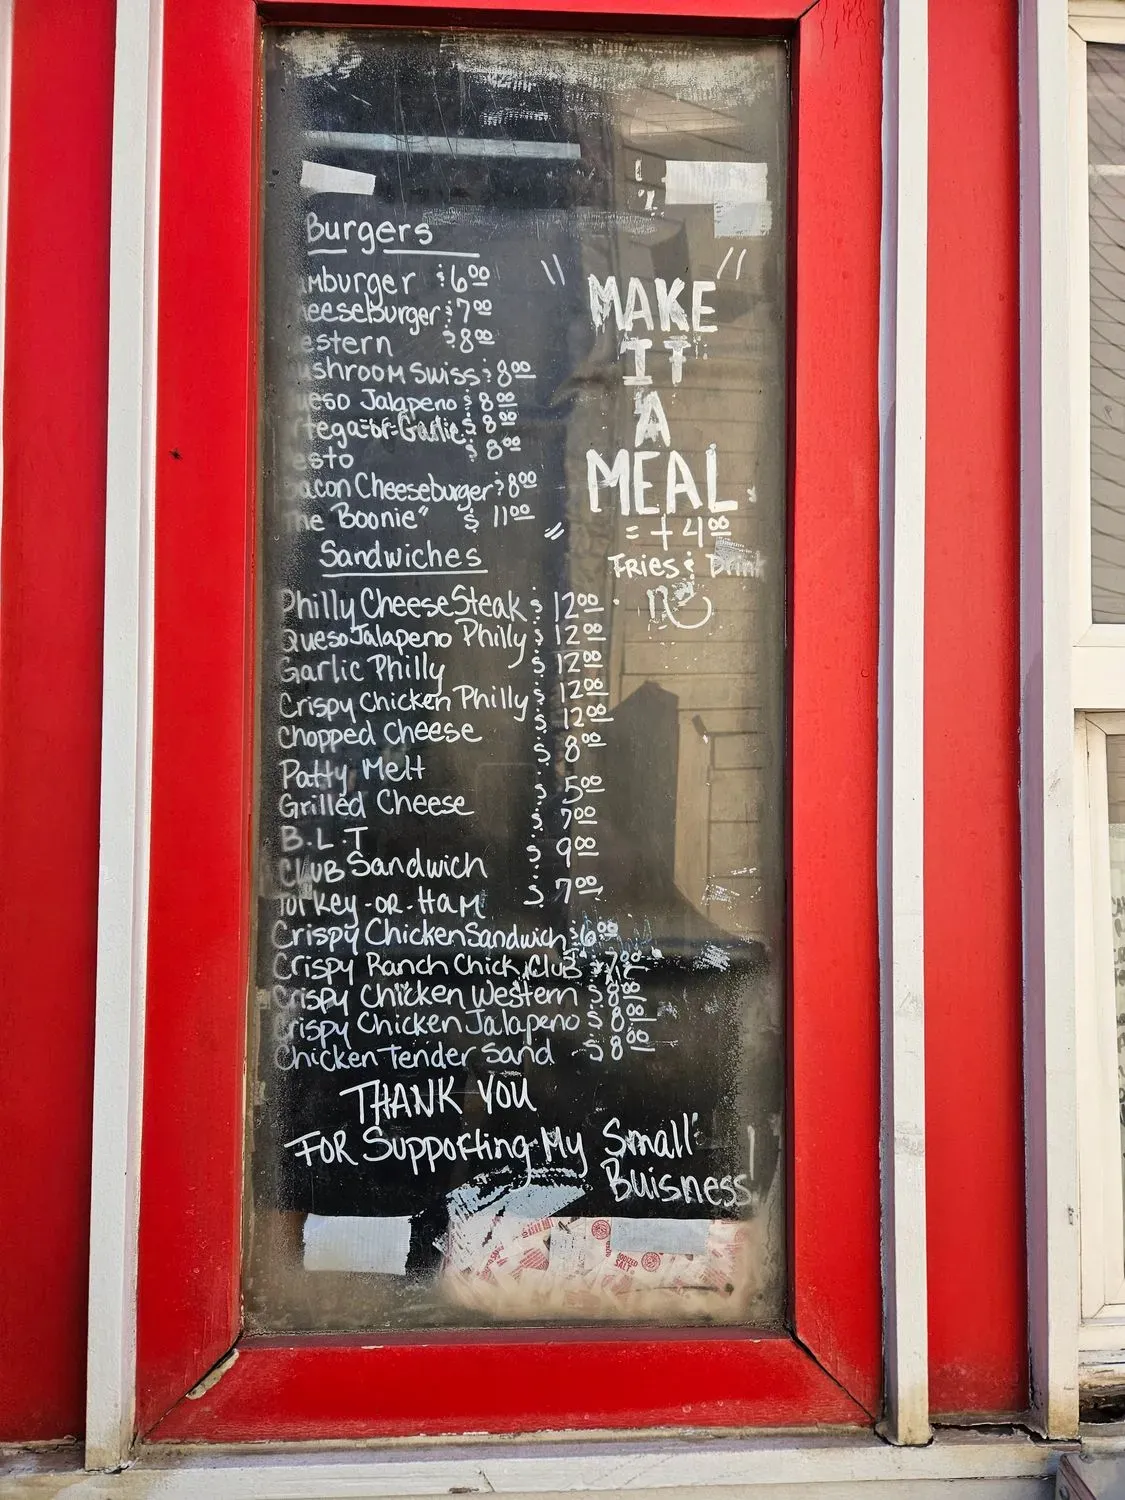 Burgers
mburger $6.00
eeseburger $7.00
estern $8.00
shroom Swiss $8.00
ueso Jalapeno $8.00
rtega-or-Garlic $8.00
esto $8.00
acon Cheeseburger $8.00
he Boonie" $11.00
Sandwiches
Philly Cheese Steak $12.00
Queso Jalapeno Philly $12.00
Garlic Philly $12.00
Crispy Chicken Philly $12.00
Chopped Cheese $12.00
Patty Melt $8.00
Grilled Cheese $5.00
B.L.T $7.00
Club Sandwich $9.00
Turkey-OR-Ham $7.00
Crispy Chicken Sandwich $6.00
Crispy Ranch Chick, Club $7.00
Crispy Chicken Western $8.00
Crispy Chicken Jalapeno $8.00
Chicken Tender Sand $8.00
THANK YOU
FOR Supporting My Small
Buisness
"MAKE
IT
A
MEAL"
= + 4.00
Fries & Drink
IODIZED
SALT